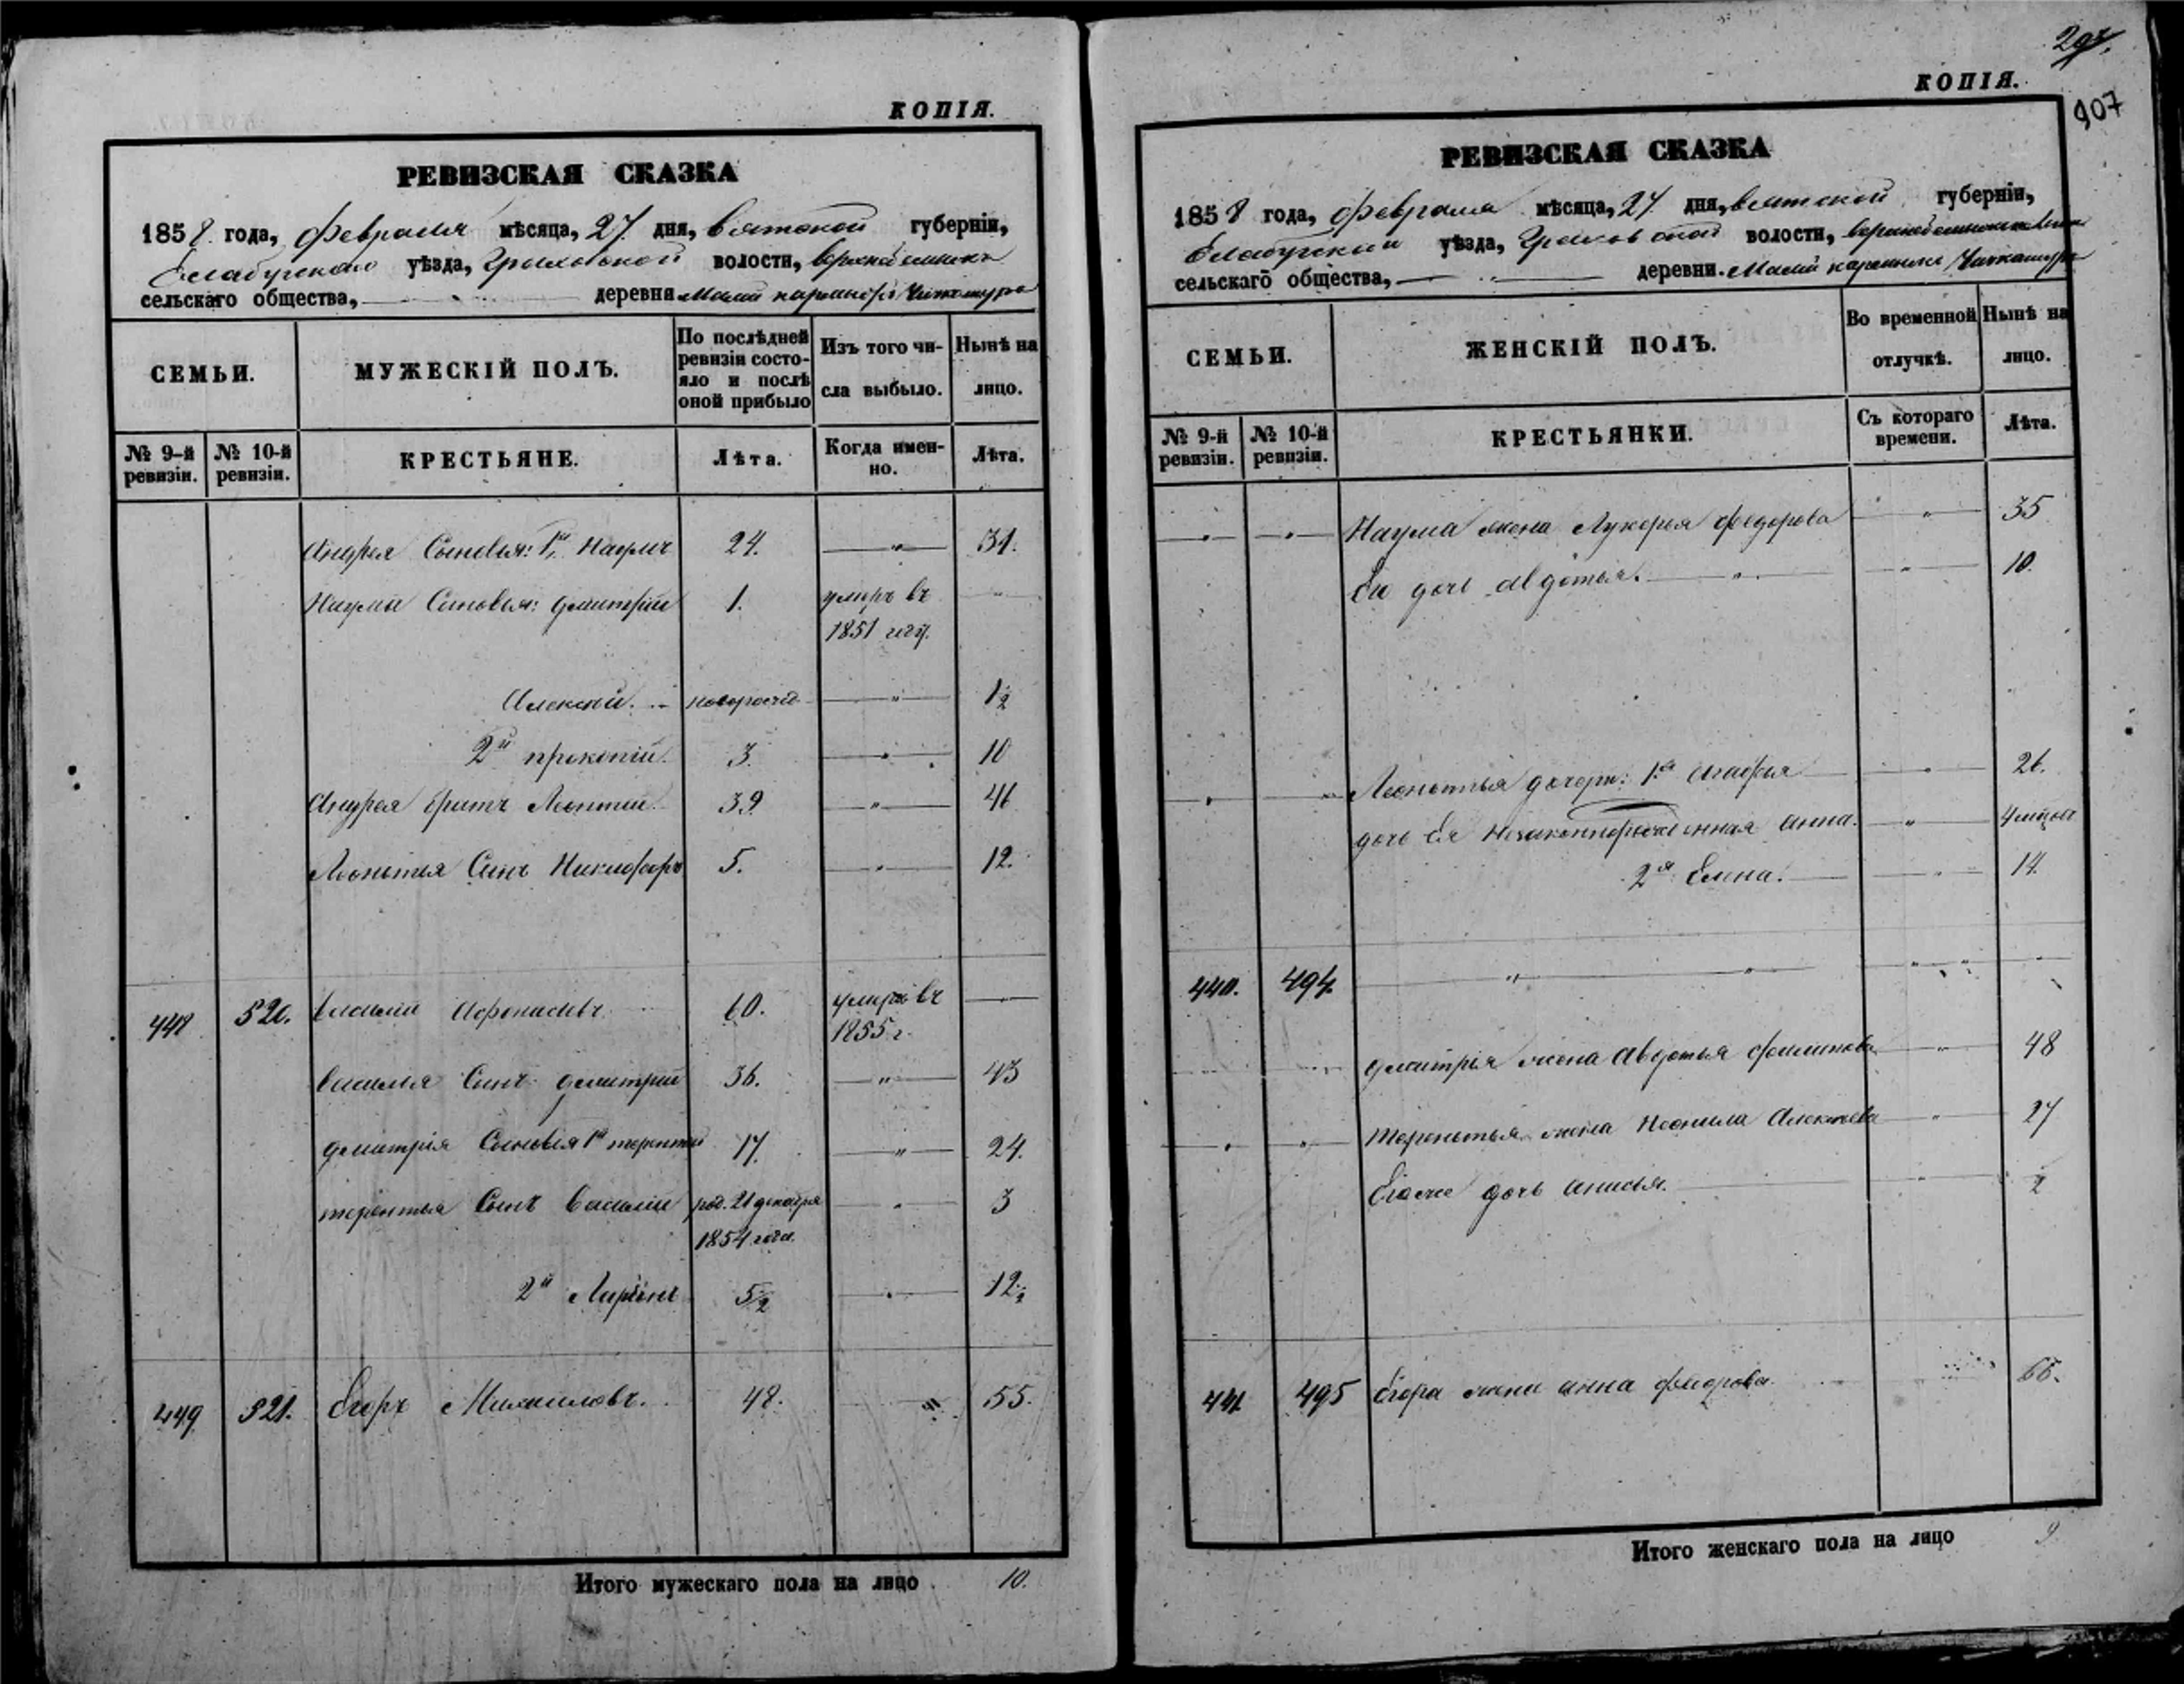 КОПІЯ.
РЕВИЗСКАЯ СКАЗКА
1858 года, Февраля мѣсяца, 27 дня, Вятской губерніи,
Елабугскаго уѣзда, волости,
сельскаго общества, деревни Малой
СЕМЬИ. МУЖЕСКІЙ ПОЛЪ. По послѣдней ревизіи состояло и послѣ оной прибыло Изъ того числа выбыло. Нынѣ на лицо.
№ 9-й ревизіи. № 10-й ревизіи. КРЕСТЬЯНЕ. Лѣта. Когда именно. Лѣта.
Андрея Сыновья: 1й Наумъ 24. — " — 31.
Наума Сыновья: Дмитрій 1. умеръ въ "
1851 году.
Алексѣй. — " — 1½
2й Прокопій. 3. — " — 10
Андрея братъ Леонтій. 39 — " — 46
Леонтья Сынъ Никифоръ 5. — " — 12.
448 320. Василій 60. умеръ въ — " —
1855 г.
Василья Сынъ Дмитрій 36. — " — 43
Дмитрія Сыновья 1й Терентій 17. — " — 24.
Терентья Сынъ Василій род. 21 декабря — " — 3
1854 года.
2й 5½ — " — 12½
449 321. Егоръ Михайловъ. 48. " 55.
Итого мужескаго пола на лицо 10.
297.
КОПІЯ.
907
РЕВИЗСКАЯ СКАЗКА
1858 года, Февраля мѣсяца, 27 дня, Вятской губерніи,
Елабугскаго уѣзда, волости,
сельскаго общества, — " — деревни Малой
СЕМЬИ. ЖЕНСКІЙ ПОЛЪ. Во временной отлучкѣ. Нынѣ на лицо.
№ 9-й ревизіи. № 10-й ревизіи. КРЕСТЬЯНКИ. Съ котораго времени. Лѣта.
— " — — " — Наума жена Лукерья Федорова — " — 35
Его дочь Авдотья. — " — — " — 10.
— " — — " — Леонтья дочери: 1я Агафья — " — 26.
дочь Ея незаконнорожденная Анна. — " — 4 мѣсяца
2я Елена. — " — 14.
440. 494. — " — " — " " —
Дмитрія жена Авдотья — " — 48
— " — — " — Терентья жена Неонила Алексѣева — " — 27
Его же дочь Анисья. — " — 2
441 495 Егора жена Анна Федорова. 66.
Итого женскаго пола на лицо 9.